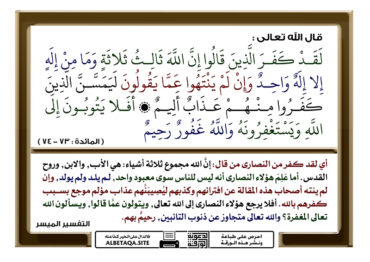 قال الله تعالى :
لَقَدْ كَفَرَ الَّذِينَ قَالُوا إِنَّ اللَّهَ ثَالِثُ ثَلَاثَةٍ وَمَا مِنْ إِلَهٍ
إِلا إِلَهٌ وَاحِدٌ وَإِنْ لَمْ يَنْتَهُوا عَمَّا يَقُولُونَ لَيَمَسَّنَّ الَّذِينَ
كَفَرُوا مِنْهُمْ عَذَابٌ أَلِيمٌ ۞ أَفَلا يَتُوبُونَ إِلَى
اللَّهِ وَيَسْتَغْفِرُونَهُ وَاللَّهُ غَفُورٌ رَحِيمٌ
( المائدة : ٧٣ - ٧٤ )
أي لقد كفر من النصارى من قال: إنَّ الله مجموع ثلاثة أشياء: هي الأب، والابن، وروح
القدس. أما عَلِمَ هؤلاء النصارى أنه ليس للناس سوى معبود واحد، لم يلد ولم يولد، وإن
لم ينته أصحاب هذه المقالة عن افترائهم وكذبهم ليُصيبَنَّهم عذاب مؤلم موجع بسبب
كفرهم بالله . أفلا يرجع هؤلاء النصارى إلى الله تعالى، ويتولون عمَّا قالوا، ويسألون الله
تعالى المغفرة؟ والله تعالى متجاوز عن ذنوب التائبين، رحيمٌ بهم.
التفسير الميسر
احرص على طباعة
ونشر هذه الورقة
ALBETAQA.SITE